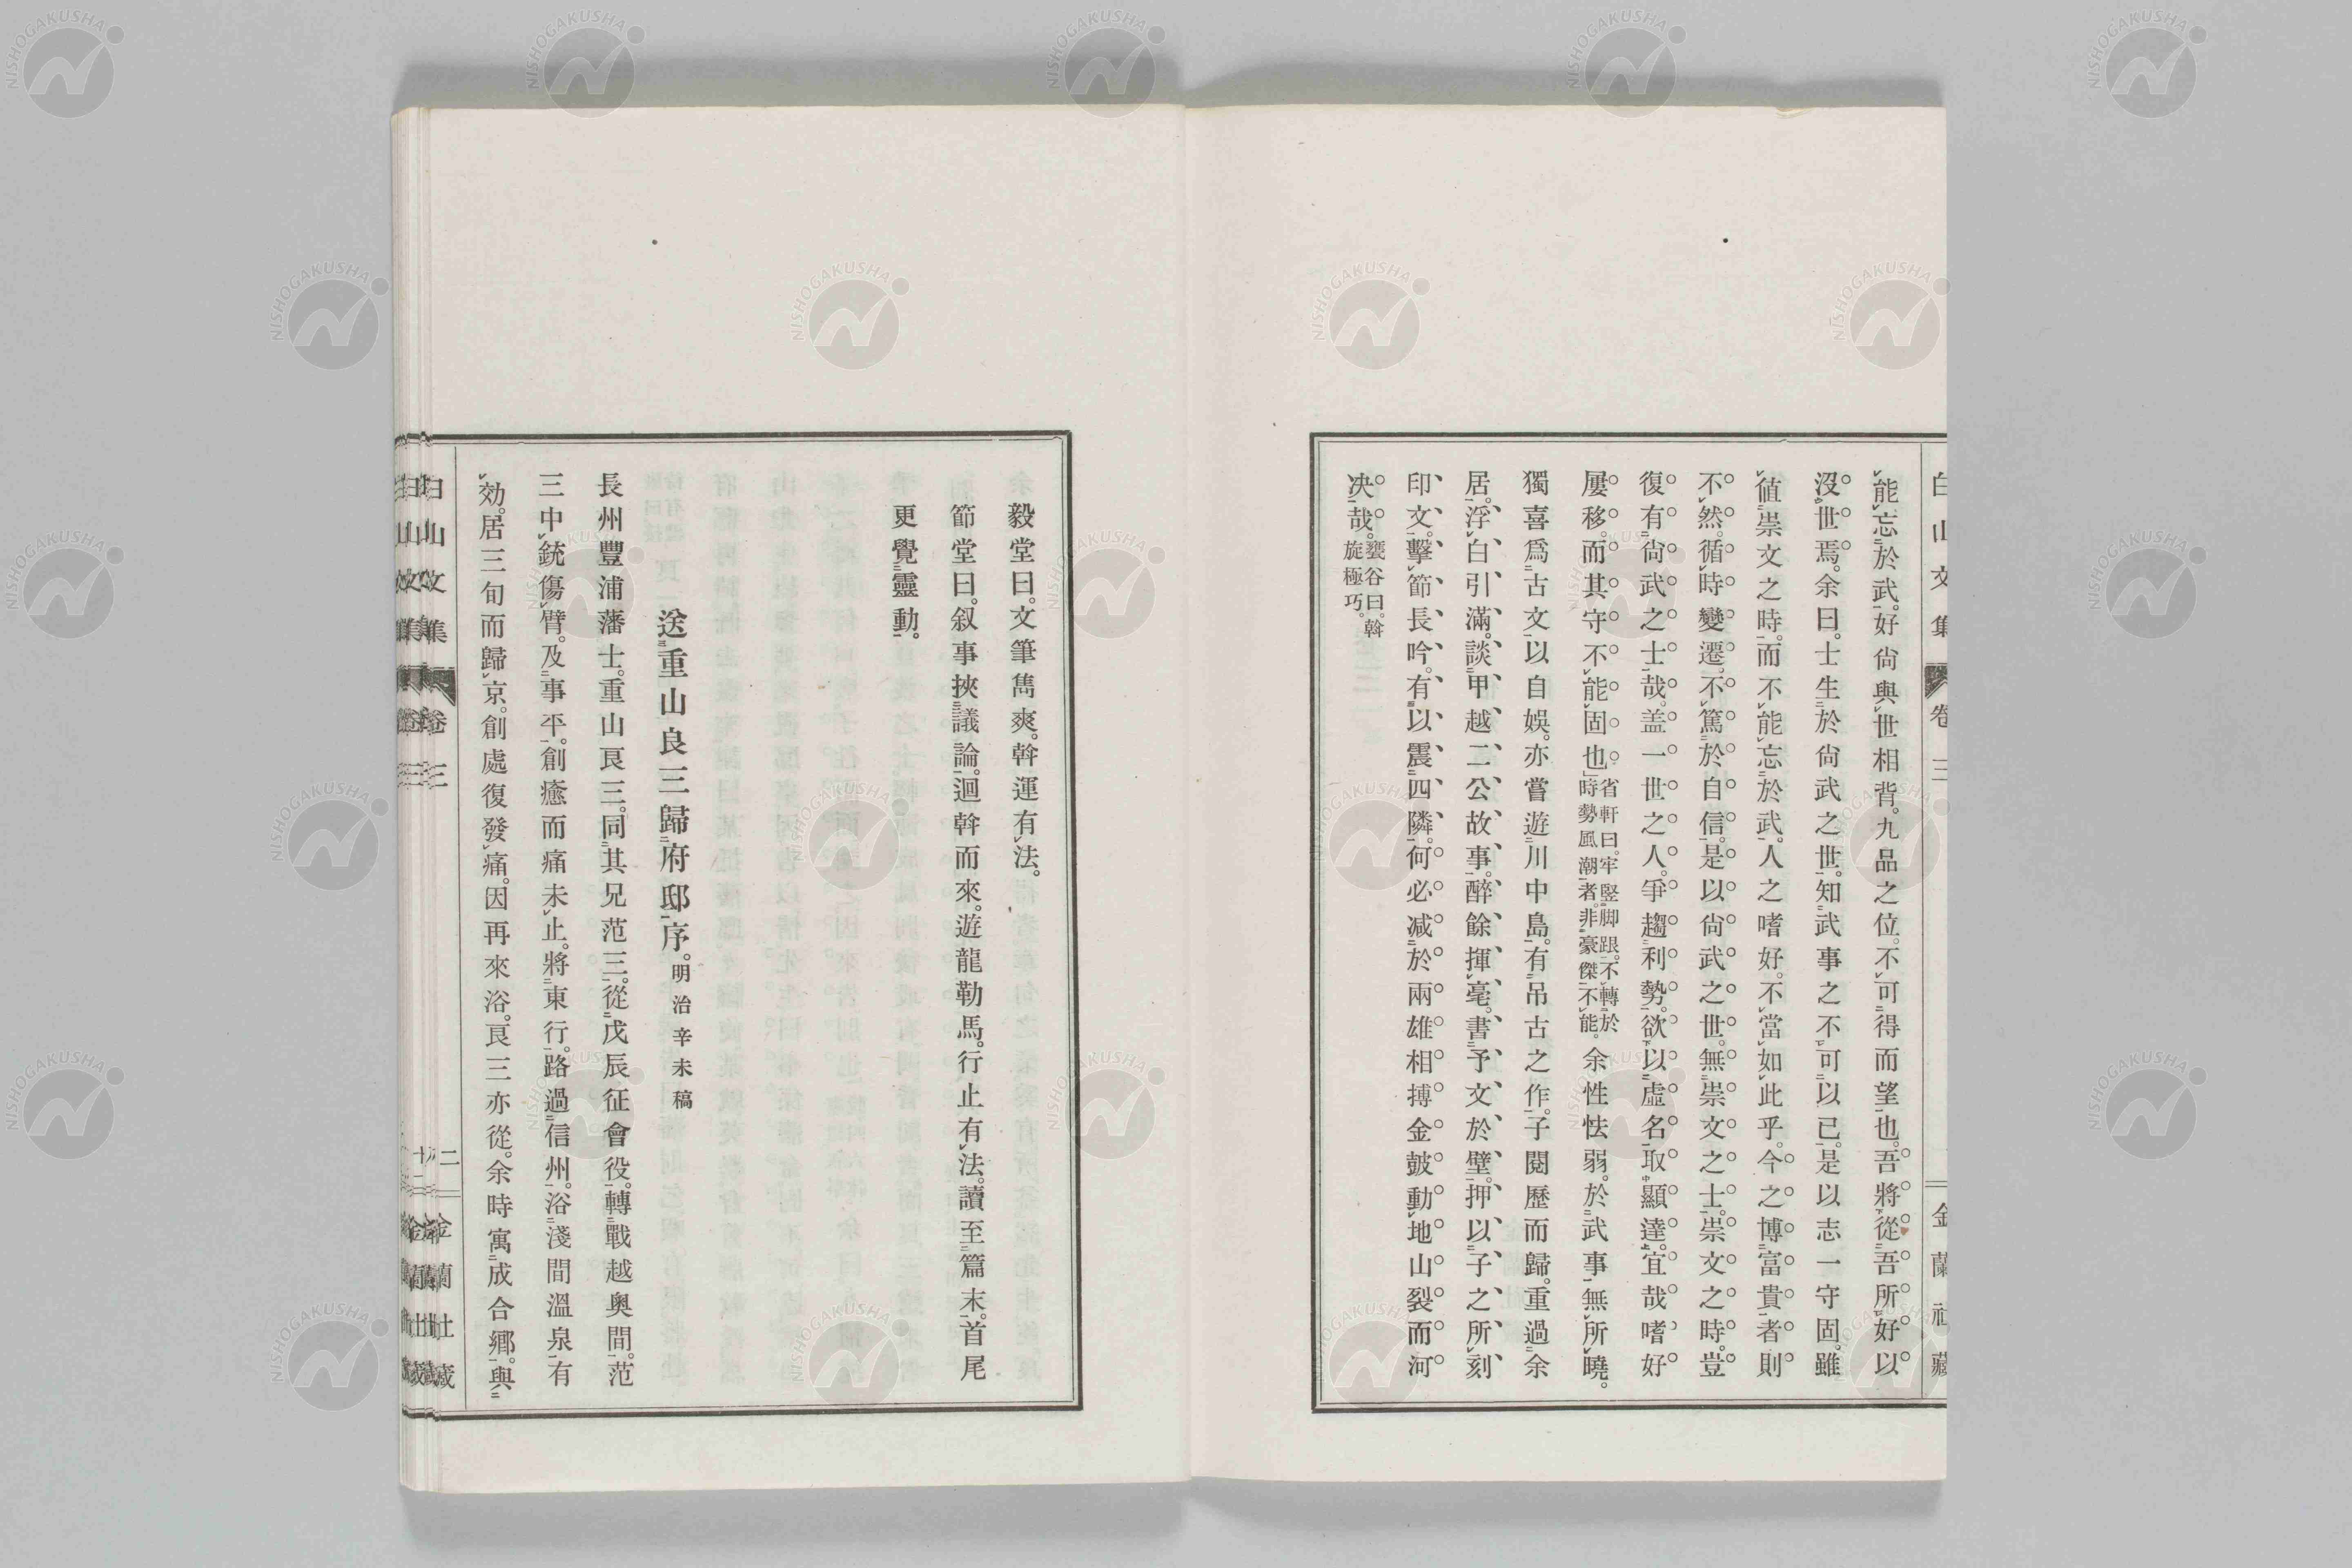 能忘於武。好尙與世相背。九品之位。不可得而望也。吾將從吾所好以
沒世焉。余曰。士生於尙武之世。知武事之不可以已。是以志一守固。雖
値崇文之時。而不能忘於武。人之嗜好。不當如此乎。今之博富貴者則
不然。循時變遷。不篤於自信。是以尙武之世。無崇文之士。崇文之時。豈
復有尙武之士哉。盖一世之人。爭趨利勢。欲以虛名取顯達。宜哉嗜好
屢移。而其守不能固也。省軒曰。牢竪脚跟。不轉於時勢風潮者。非豪傑不能。余性怯弱。於武事無所曉。
獨喜爲古文以自娛。亦嘗遊川中島。有吊古之作。子閱歷而歸。重過余
居。浮白引滿。談甲越二公故事。醉餘揮毫。書予文於壁。押以子之所刻
印文。擊節長吟。有以震四隣。何必減於兩雄相搏金皷動地山裂而河
决哉。甕谷曰。斡旋極巧。
白山文集 卷三 金蘭社藏
毅堂曰。文筆雋爽。斡運有法。
節堂曰。叙事挾議論。迴斡而來。遊龍勒馬。行止有法。讀至篇末。首尾
更覺靈動。
送重山良三歸府邸序。明治辛未稿
長州豐浦藩士。重山良三。同其兄范三。從戊辰征會役。轉戰越奧間。范
三中銃傷臂。及事平。創癒而痛未止。將東行。路過信州。浴淺間溫泉有
効。居三旬而歸京。創處復發痛。因再來浴。良三亦從。余時寓成合鄕。與
白山文集 卷三 二 金蘭社藏